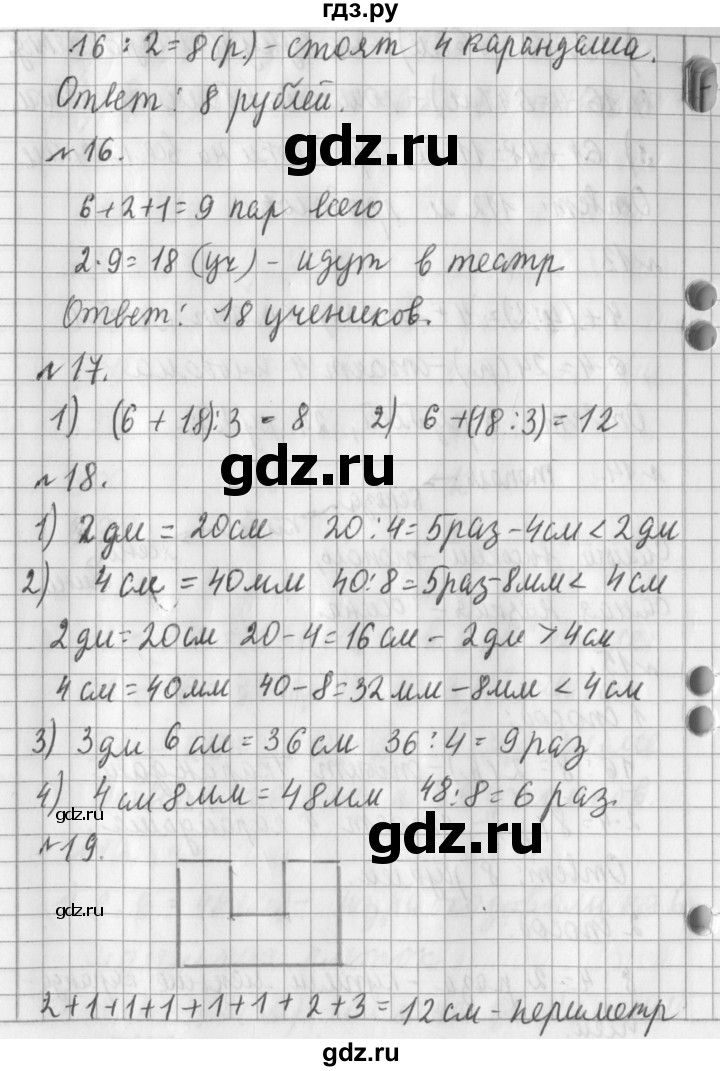 гдз.ру
16 : 2 = 8 (р.) - стоят 4 карандаша.
Ответ: 8 рублей.
gdz.ru
№16.
6+2+1=9 пар всего
2·9=18 (уч) - идут в театр
Ответ: 18 учеников.
№17.
1) (6 + 18):3 = 8 2) 6 +(18:3)= 12
gdz.ru
№18.
1) 2 дм = 20см 20:4=5раз-4см<2 дм
2) 4 см = 40мм 40:8=5раз-8мм< 4см
2 дм=20см 20-4=16см- 2дм>4см
4см=40мм 40-8=32мм-8мм<4см
3) 3 дм 6 см=36см 36:4=9 раз
4) 4см 8мм=48мм 48:8=6 раз.
gdz.ru
gdz.ru
№19.
gdz.ru
2+1+1+1+1+1+2+3=12 см-периметр
gdz.ru